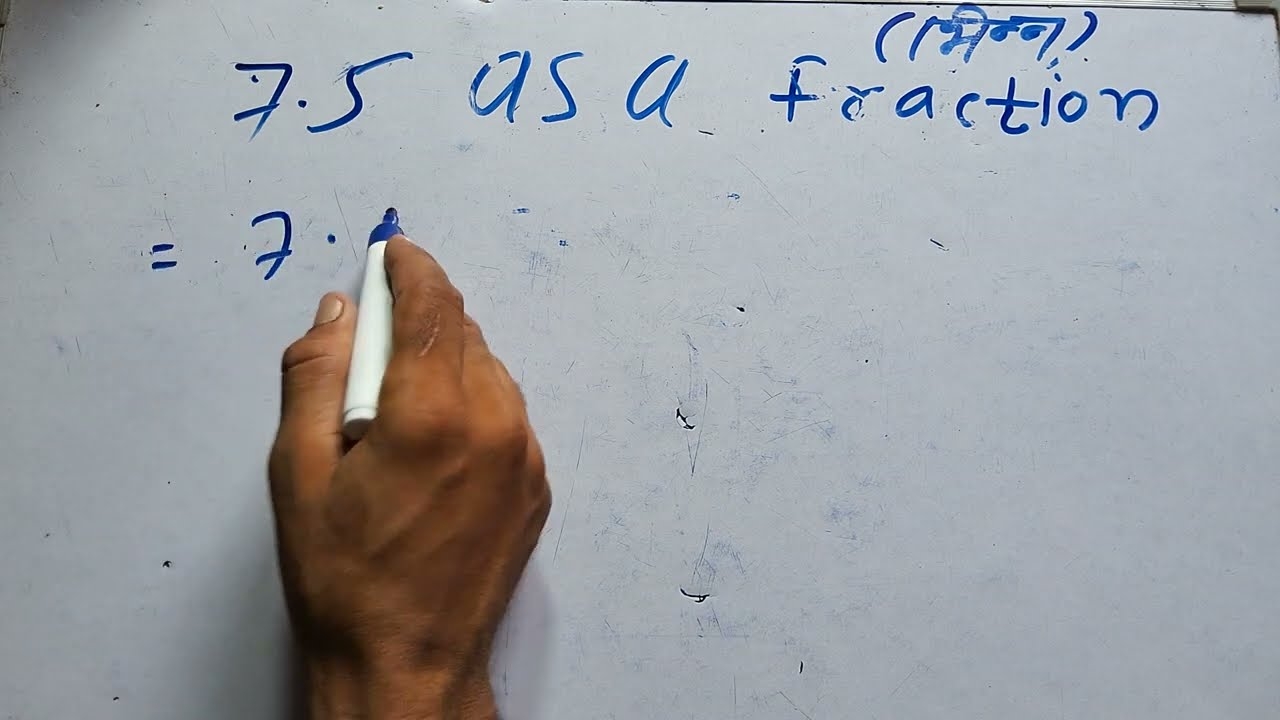 (भिन्न)
7.5 as a fraction
= 7.